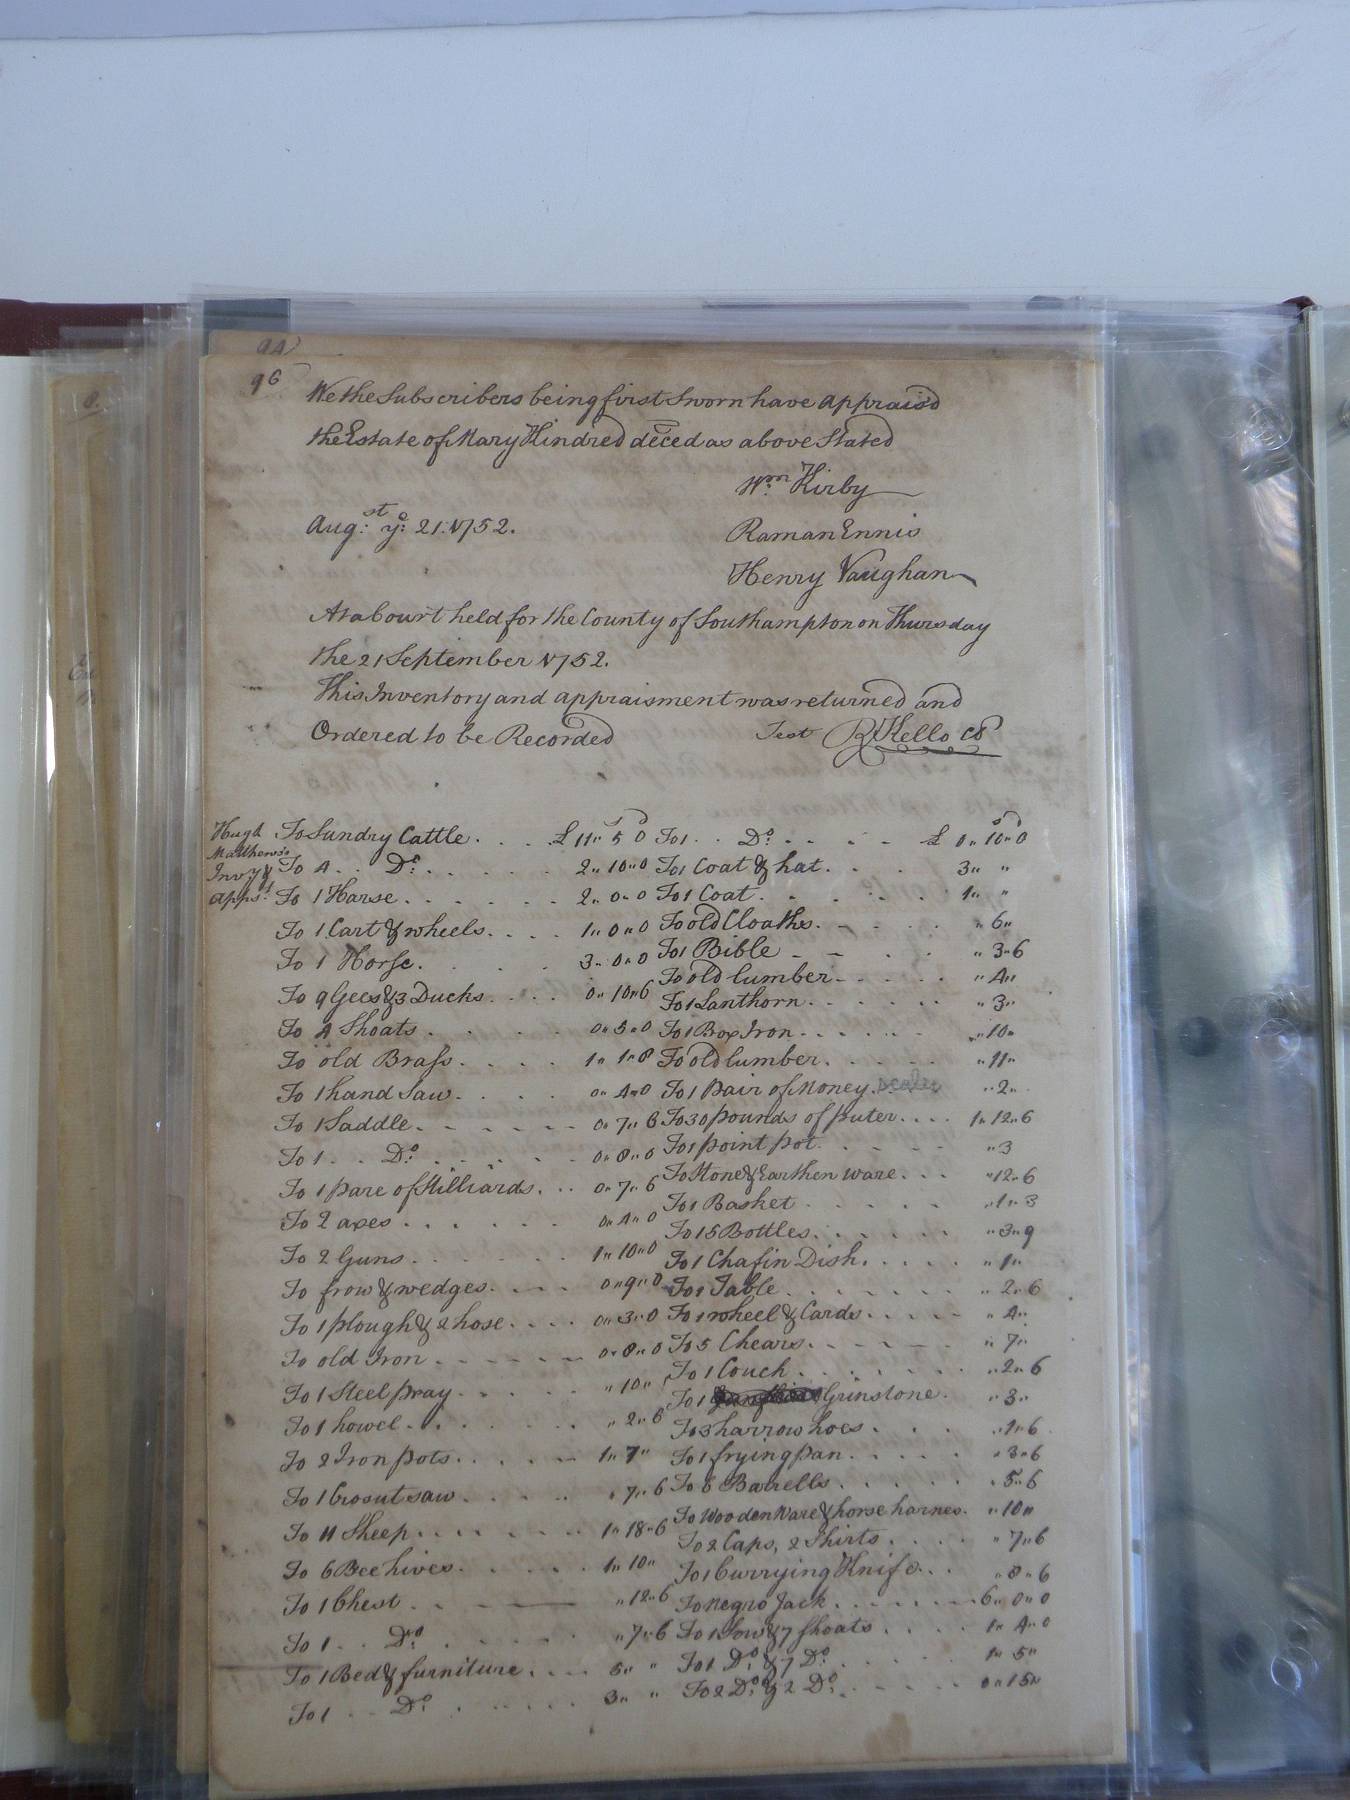 94
96
We the Subscribers being first Sworn have appraisd
the Estate of Mary Kindred deced as above Stated
Wm. Kirby
Raman Ennis
Augst: ye: 21: 1752.
Henry Vaughan
At a Court held for the County of Southampton on Thursday
the 21 September 1752.
This Inventory and appraisment was returned and
Ordered to be Recorded
Test R Kello CC
Hugh
Matthews's
Invy &
Appst.
s D
To Sundry Cattle . . . . £ 11 " 5 0
To 4 . . Do. . . . . . 2 " 10 " 0
To 1 Harse . . . . . . 2 " 0 " 0
To 1 Cart & wheels . . . . 1 " 0 " 0
To 1 Horse . . . . 3 " 0 " 0
To 9 Gees & 3 Ducks . . . . 0 " 10 " 6
To 4 Shoats . . . . . 0 " 5 " 0
To old Brass . . . . 1 " 1 " 8
To 1 hand Saw . . . . 0 " 4 " 0
To 1 Saddle . . . . . . 0 " 7 " 6
To 1 . . Do. . . . . . 0 " 8 " 0
To 1 pare of Stilliards . . . 0 " 7 " 6
To 2 axes . . . . . . 0 " 4 " 0
To 2 Guns . . . . . . 1 " 10 " 0
To frow & wedges . . . . 0 " 9 " 0
To 1 plough & 2 hose . . . . 0 " 3 " 0
To old Iron . . . . . . 0 " 8 " 0
To 1 Steel pray . . . . . " 10 "
To 1 howel . . . . . . " 2 " 6
To 2 Iron pots . . . . . 1 " 7 "
To 1 Crosut saw . . . . " 7 " 6
To 11 Sheep . . . . . . 1 " 18 " 6
To 6 Bee hives . . . . . 1 " 10 "
To 1 Chest . . " 12 " 6
To 1 . . Do . . . . . " 7 " 6
To 1 Bed & furniture . . . . 5 " "
To 1 . . Do. . . . . . 3 " "
s D
To 1 . . Do. . . . . £ 0 " 10 " 0
To 1 Coat & hat . . . . 3 " "
To 1 Coat . . . . . 1 " "
To old Cloaths . . . . " 6 "
To 1 Bible . . . . " 3 " 6
To old lumber . . . . . " 4 "
To 1 Lanthorn . . . . . . " 3 "
To 1 Box Iron . . . . . . " 10 "
To old lumber . . . . . " 11 "
To 1 Pair of Money Scales " 2 "
To 30 pounds of puter . . . . 1 " 12 " 6
To 1 point pot . . . . " 3
To Stone & Earthen ware . . . " 12 " 6
To 1 Basket . . . . . " 1 " 3
To 15 Bottles . . . . . . " 3 " 9
To 1 Chafin Dish . . . . . " 1 "
To 1 Table . . . . . . . " 2 " 6
To 1 wheel & Cards . . . . . " 4 "
To 5 Chears . . . . . . " 7 "
To 1 Couch . . . . . . " 2 " 6
To 1 Grinstone . " 3 "
To 3 harrow hoes . . . " 1 " 6
To 1 frying pan . . . . . " 3 " 6
To 6 Barrells . . . . . " 5 " 6
To Wooden Ware & horse harnes . " 10 "
To 2 Caps, 2 Shirts . . . . " 7 " 6
To 1 Currying Knife . . . " 8 " 6
To Negro Jack . . . . . . . 6 " 0 " 0
To 1 Sow & 7 Shoats . . . . 1 " 4 " 0
To 1 Do. & 7 Do. . . . . . 1 " 5 "
To 2 Do. & 2 Do. . . . . . 0 " 15 "